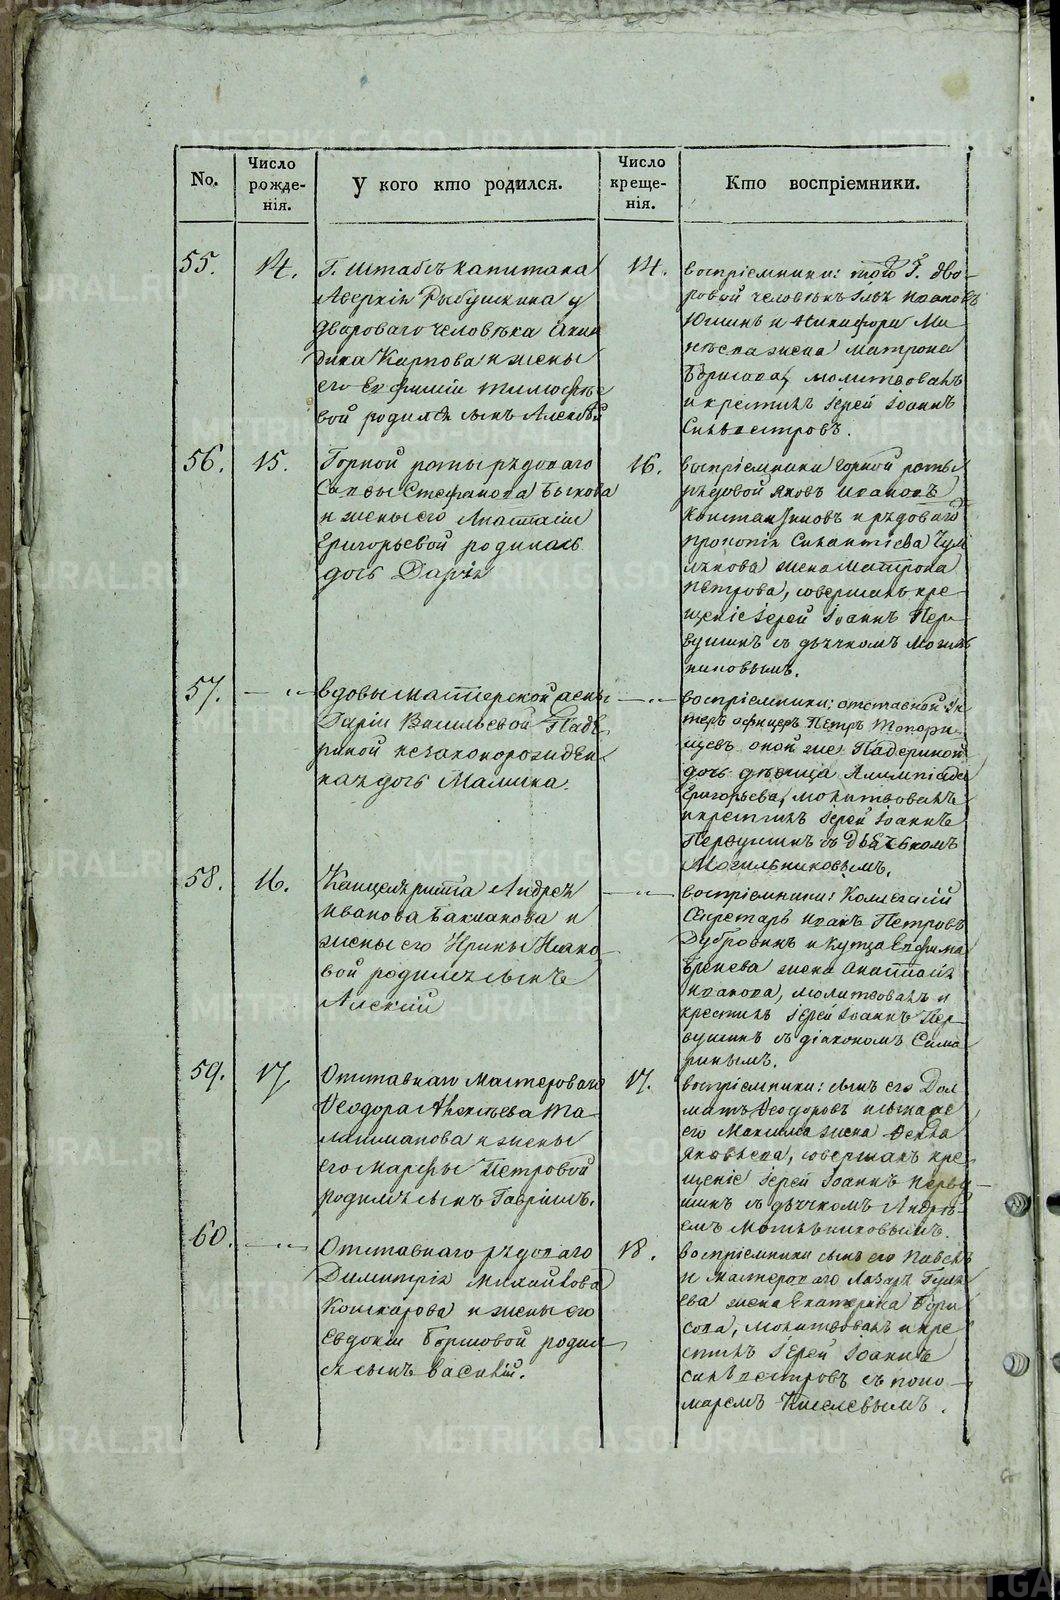 METRIKI.GASO-URAL.RU
No.
Число рожде-нія.
У кого кто родился.
Число креще-нія.
Кто воспріемники.
55.
14.
Г. Штабсъ капитана
Аверкія Рыбушкина у
двороваго человѣка
Карпова и жены
его Евфиміи Тимофѣе
вой родился сынъ Алексѣй
14.
воспріемники: того Г. дво-
ровой человѣкъ Илья Ивановъ
Юшинъ и Никифора Ми
нѣева жена Матрона
Борисова, молитвовалъ
и крестилъ Іерей Іоаннъ
Сильвестровъ.
56.
15.
Горной роты рѣдоваго
Саввы Стефанова Быкова
и жены его Анастасіи
Григорьевой родилась
дочь Дарія
16.
воспріемники горной роты
рѣдовой Яковъ Ивановъ
Константиновъ и рѣдоваго
Прокопія
жена Матрона
Петрова, совершалъ кре-
щеніе Іерей Іоаннъ Пер-
вушинъ съ дьячкомъ Могиль
никовымъ.
57.
— „—
вдовы мастерской жены
Даріи Васильевой Паде
риной незаконорожден
ная дочь Малина.
— „—
воспріемники: отставной Ун
теръ офицеръ Петръ Топори-
щевъ оной же Падериной
дочь дѣвица Алимпіада
Григорьева, молитвовалъ
и крестилъ Іерей Іоаннъ
Первушинъ съ дьячкомъ
Могильниковымъ.
58.
16.
Канцеляриста Андрея
Иванова Бакланова и
жены его Ирины Ивано-
вой родился сынъ
Алексій
— „—
воспріемники: Коллежскій
Секретарь Иванъ Петровъ
Дубровинъ и купца Ефима
жена Анастасія
Иванова, молитвовалъ и
крестилъ Іерей Іоаннъ Пер-
вушинъ съ діакономъ Сама
ринымъ.
59.
17
Отставнаго мастероваго
Феодора Алексѣева Та
ланманова и жены
его Марфы Петровой
родился сынъ Гавріилъ.
17.
воспріемники: сынъ его Дол
матъ Феодоровъ и сына же
его Максима жена Фекла
Яковлева, совершалъ кре
щеніе Іерей Іоаннъ Перву-
шинъ съ дьячкомъ Андре-
емъ Могильниковымъ.
60.
— „—
Отставнаго рѣдоваго
Димитрія Михайлова
Кошкарова и жены его
Евдокіи родил-
ся сынъ Василій.
18.
воспріемники сынъ его Павелъ
и мастероваго Лазаря Гуля
ева жена Екатерина Бори
сова, молитвовалъ и кре
стилъ Іерей Іоаннъ
Сильвестровъ съ поно-
маремъ Киселевымъ.